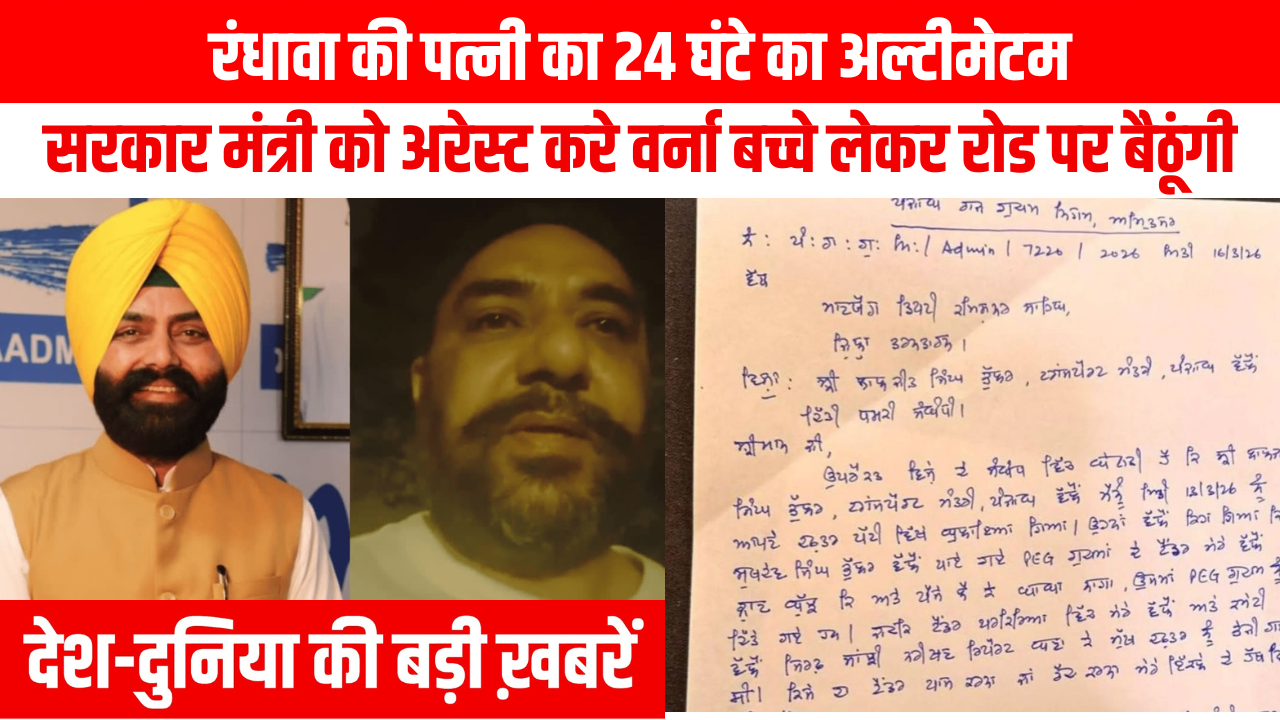 रंधावा की पत्नी का 24 घंटे का अल्टीमेटम
सरकार मंत्री को अरेस्ट करे वर्ना बच्चे लेकर रोड पर बैठूंगी
AADM
देश-दुनिया की बड़ी ख़बरें
ਪੰਜਾਬ ਰਾਜ ਗੁਦਾਮ ਨਿਗਮ, ਅਮ੍ਰਿਤਸਰ
ਨੰ: ਪੰ:ਰਾ:ਗੁ: ਨਿ:/ Admin / 7220 / 2026 ਮਿਤੀ 16/3/26
ਵੱਲ
ਮਾਣਯੋਗ ਡਿਪਟੀ ਕਮਿਸ਼ਨਰ ਸਾਹਿਬ,
ਜ਼ਿਲ੍ਹਾ ਤਰਨਤਾਰਨ।
ਵਿਸ਼ਾ: ਸ੍ਰੀ ਲਾਲਜੀਤ ਸਿੰਘ ਭੁੱਲਰ, ਟਰਾਂਸਪੋਰਟ ਮੰਤਰੀ, ਪੰਜਾਬ ਵੱਲੋਂ
ਦਿੱਤੀ ਧਮਕੀ ਸੰਬੰਧੀ।
ਸ੍ਰੀਮਾਨ ਜੀ,
ਉਪਰੋਕਤ ਵਿਸ਼ੇ ਦੇ ਸੰਬੰਧ ਵਿੱਚ ਬੇਨਤੀ ਹੈ ਕਿ ਸ੍ਰੀ
ਸਿੰਘ ਭੁੱਲਰ, ਟਰਾਂਸਪੋਰਟ ਮੰਤਰੀ, ਪੰਜਾਬ ਵੱਲੋਂ ਮੈਨੂੰ ਮਿਤੀ 13/3/26 ਨੂੰ
ਆਪਣੇ ਦਫ਼ਤਰ ਪੱਟੀ ਵਿਖੇ ਬੁਲਾਇਆ ਗਿਆ। ਉਹਨਾਂ ਵੱਲੋਂ ਕਿਹਾ ਗਿਆ
ਸੁਖਦੇਵ ਸਿੰਘ ਭੁੱਲਰ ਵੱਲੋਂ ਪਾਏ ਗਏ PEG ਗੁਦਾਮਾਂ ਦੇ ਟੈਂਡਰ ਮੇਰੇ ਵੱਲੋਂ
PEG ਗੁਦਾਮ
ਦਿੱਤੇ ਗਏ ਹਨ। ਟੈਂਡਰ ਵਿੱਚ ਮੇਰੇ ਵੱਲੋਂ ਅਤੇ ਕਮੇਟੀ
ਵੱਲੋਂ ਸਿਰਫ਼ ਰਿਪੋਰਟ ਦਫ਼ਤਰ ਨੂੰ ਭੇਜੀ
ਸੀ। ਕਿਸੇ ਦਾ ਟੈਂਡਰ ਪਾਸ ਕਰਨਾ ਜਾਂ ਰੱਦ ਕਰਨਾ ਮੇਰੇ